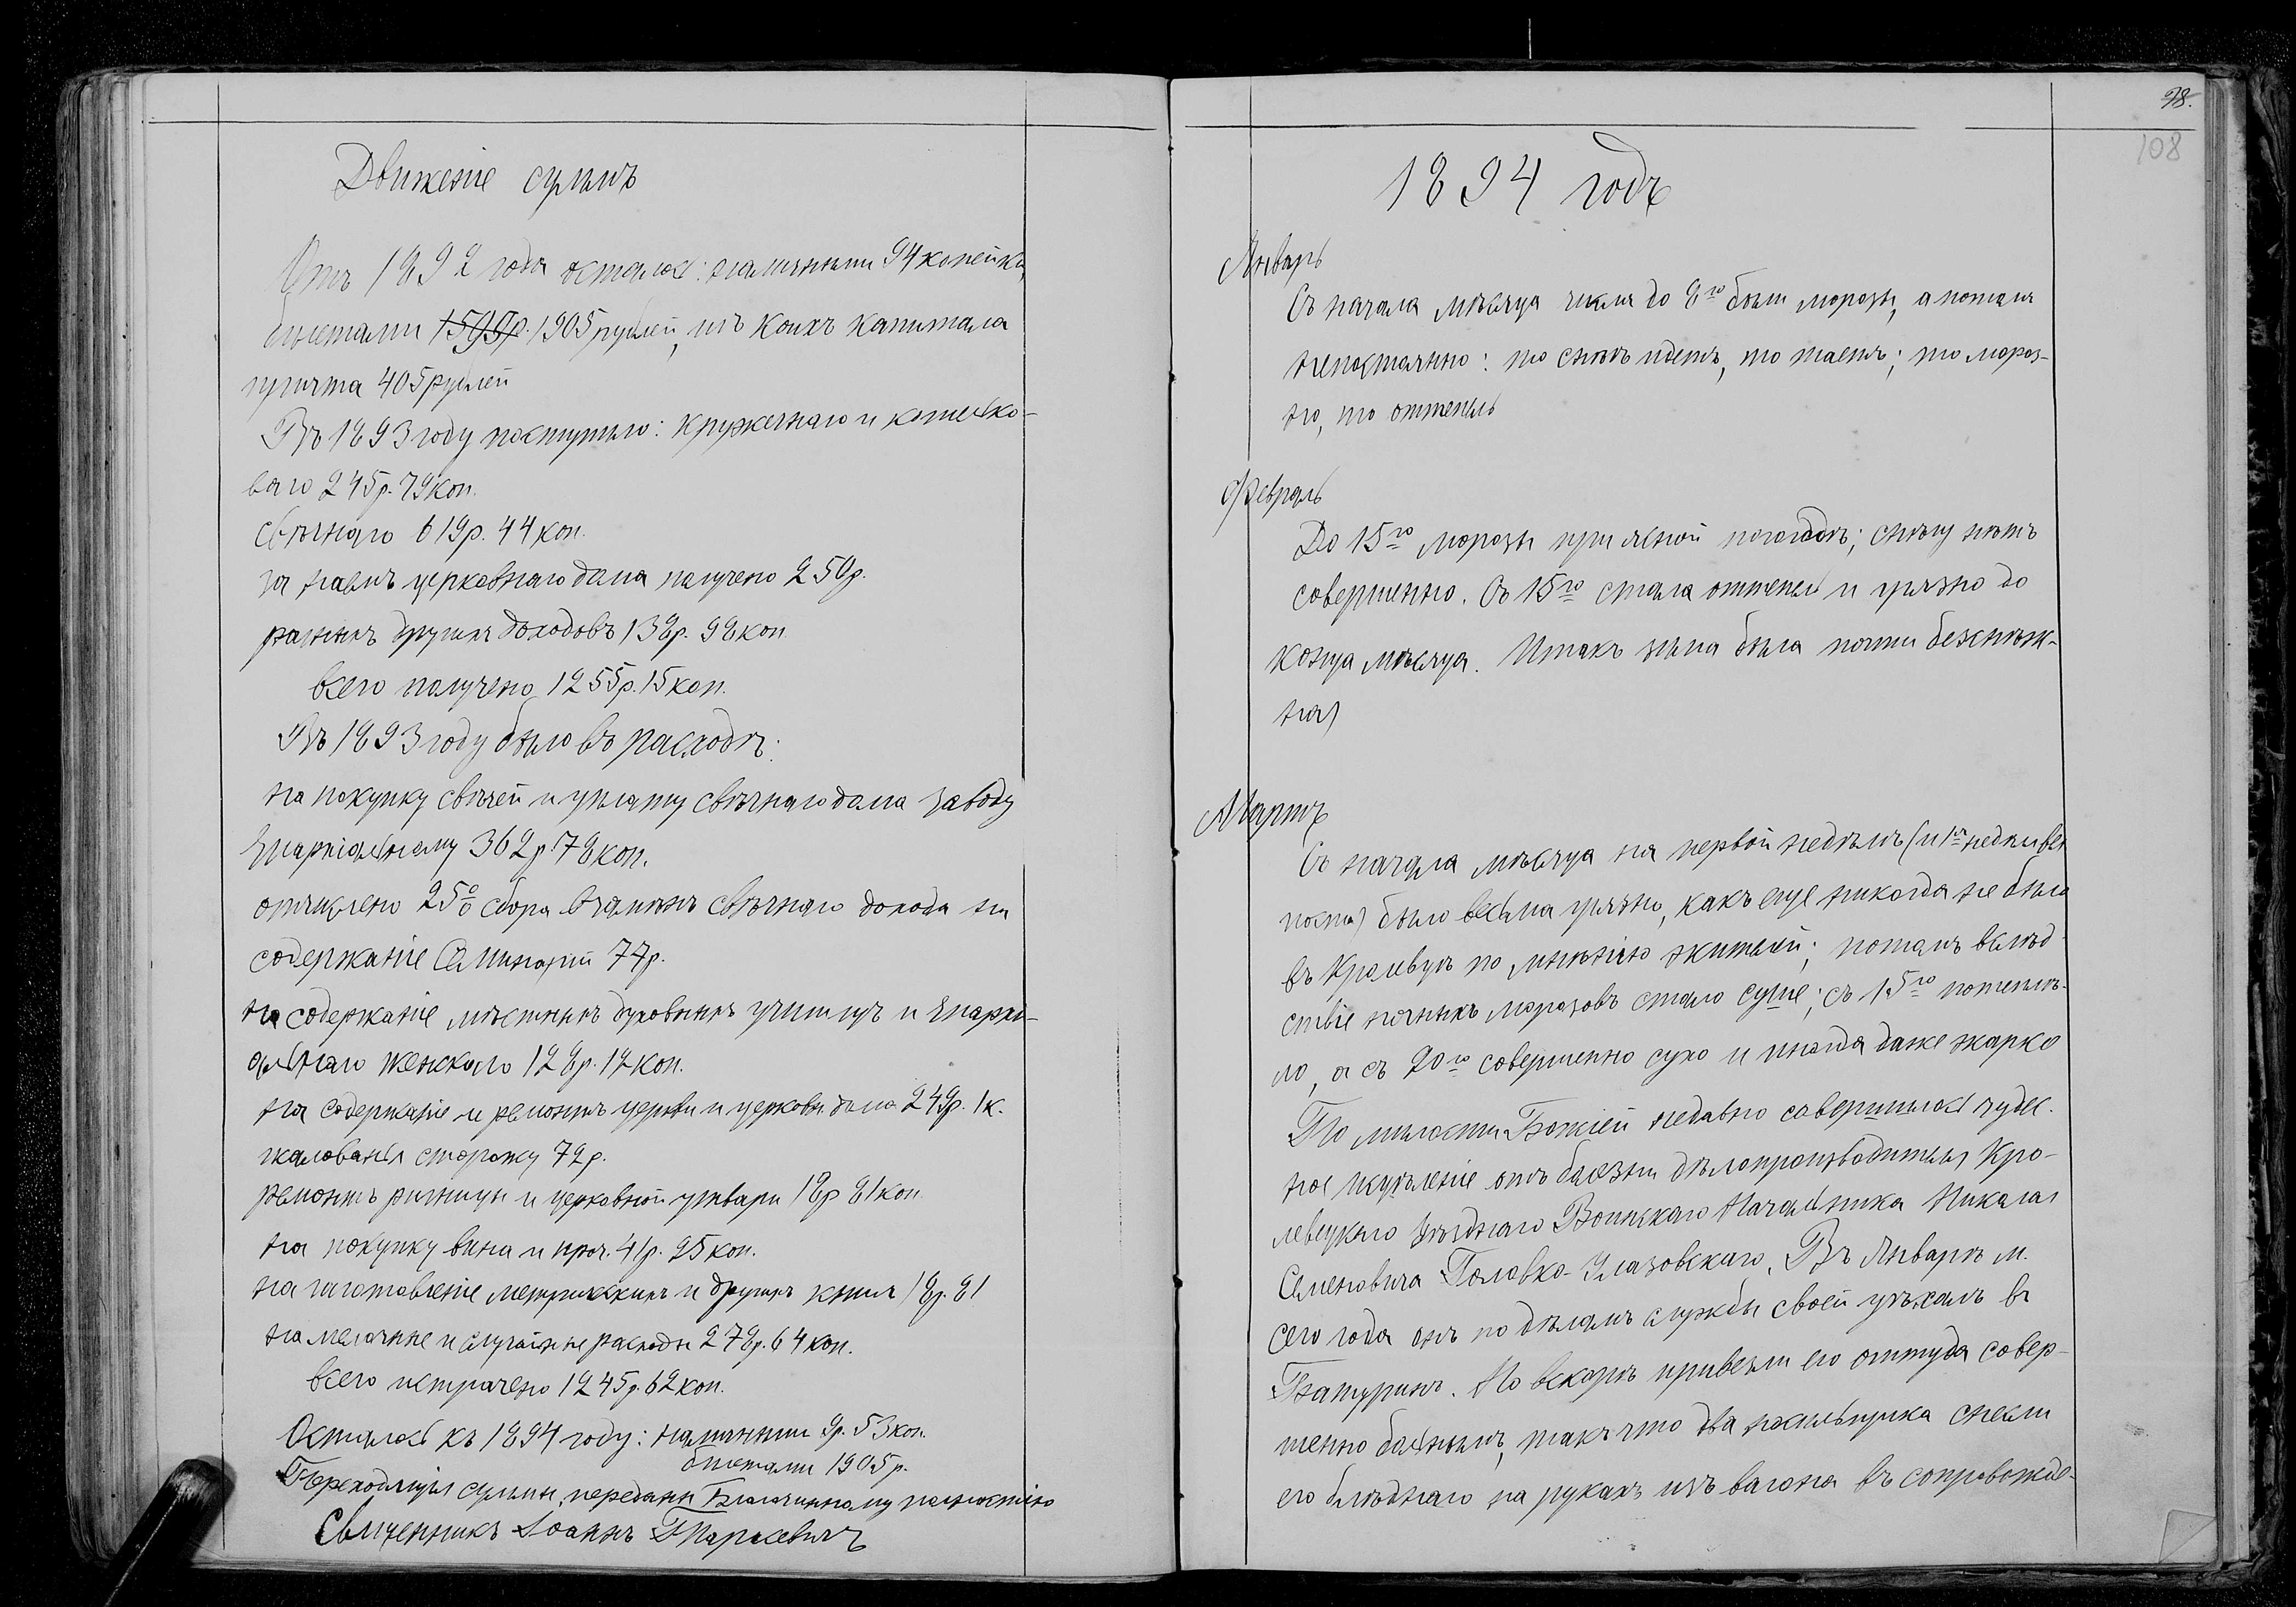 Движеніе суммъ
Отъ 1892 года осталось: наличными 94 копейки,
билетами 1599р. 1905 рублей, изъ коихъ капитала
причта 405 рублей
Въ 1893 году поступило: кружечнаго и кошелько-
ваго 245р. 79 коп.
свѣчнаго 619р. 44 коп.
за наемъ церковнаго дома получено 250р.
разныхъ другихъ доходовъ 138р. 98 коп
всего получено 1255р. 15 коп.
Въ 1893 году было въ расходѣ:
на покупку свѣчей и уплату свѣчнаго дома заводу
Епархіальному 362р. 78 коп.
отчислено 25% сбора взамѣнъ свѣчнаго дохода на
содержаніе Семинаріи 77р.
на содержаніе мѣстныхъ духовныхъ училищъ и Епархі-
альнаго женскаго 128р. 12 коп.
на содержаніе и ремонтъ церкви и церковн. дома 249р. 1к.
жалованья сторожу 72р.
ремонтъ ризницы и церковной утвари 18р 81 коп
на покупку вина и проч. 41р. 25 коп.
на изготовленіе метрическихъ и другихъ книгъ 18р. 81
на мелочные и случайные расходы 278р. 64 коп.
всего истрачено 1245р. 62 коп.
Осталось къ 1894 году: наличными 9р. 53 коп.
билетами 1905р.
Переходящія суммы переданы Благочинному полностію
Священникъ Іоаннъ
98.
108
1894 годъ
Январь
Съ начала мѣсяца числа до 8го были морозы, а потомъ
непостоянно: то снѣгъ идетъ, то таетъ; то мороз-
но, то оттепель
Февраль
До 15го морозы при ясной погодѣ; снѣгу нѣтъ
совершенно. Съ 15го стала оттепель и грязно до
конца мѣсяца. Итакъ зима была почти безснѣж-
ная
Мартъ
Съ начала мѣсяца на первой недѣлѣ (и 1я недѣля вел
поста) было весьма грязно, какъ еще никогда не было
въ Кролевцѣ по мнѣнію жителей; потомъ вслѣд-
ствіе ночныхъ морозовъ стало суше; съ 15го потеплѣ-
ло, а съ 20го совершенно сухо и иногда даже жарко
По милости Божіей недавно совершилось чудес-
ное исцѣленіе отъ болѣзни дѣлопроизводителя Кро-
левецкаго Уѣзднаго Воинскаго Начальника Николая
Семеновича Головко-Улазовскаго. Въ Январѣ м.
сего года онъ по дѣламъ службы своей уѣхалъ въ
Батуринъ. Но вскорѣ привезли его оттуда совер-
шенно больнымъ, такъ что два носильщика снесли
его блѣднаго на рукахъ изъ вагона въ сопровожде-